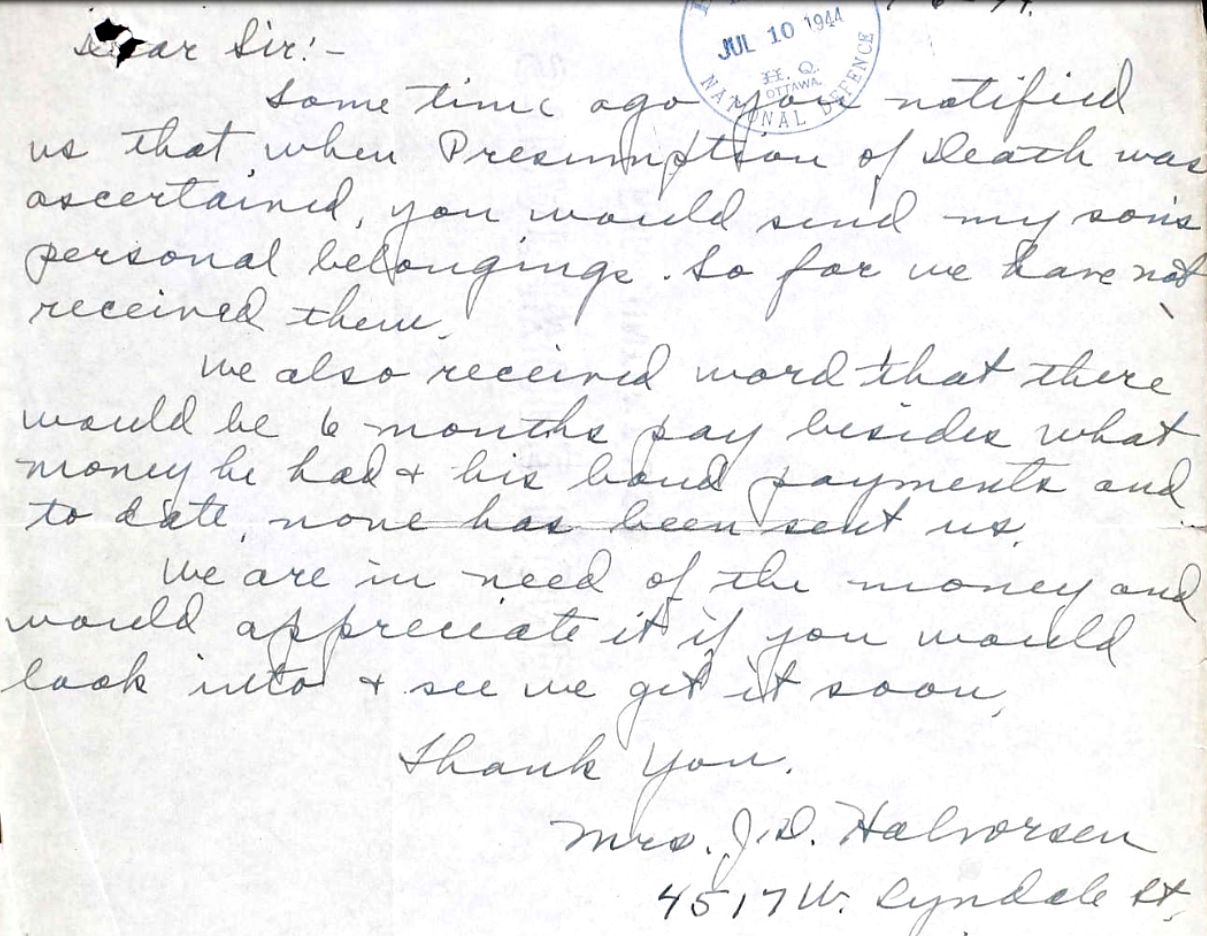 Dear Sir:-
JUL 10 1944
H. Q.
OTTAWA.
NATIONAL DEFENCE
Some time ago you notified
us that when Presumption of Death was
ascertained, you would send my son's
personal belongings. So far we have not
received them.
We also received word that there
would be 6 months pay besides what
money he had & his bond payments and
to date, none has been sent us.
We are in need of the money and
would appreciate it if you would
look into & see we get it soon.
Thank You.
Mrs. J.D. Halvorsen
4517 W. Lyndale St.